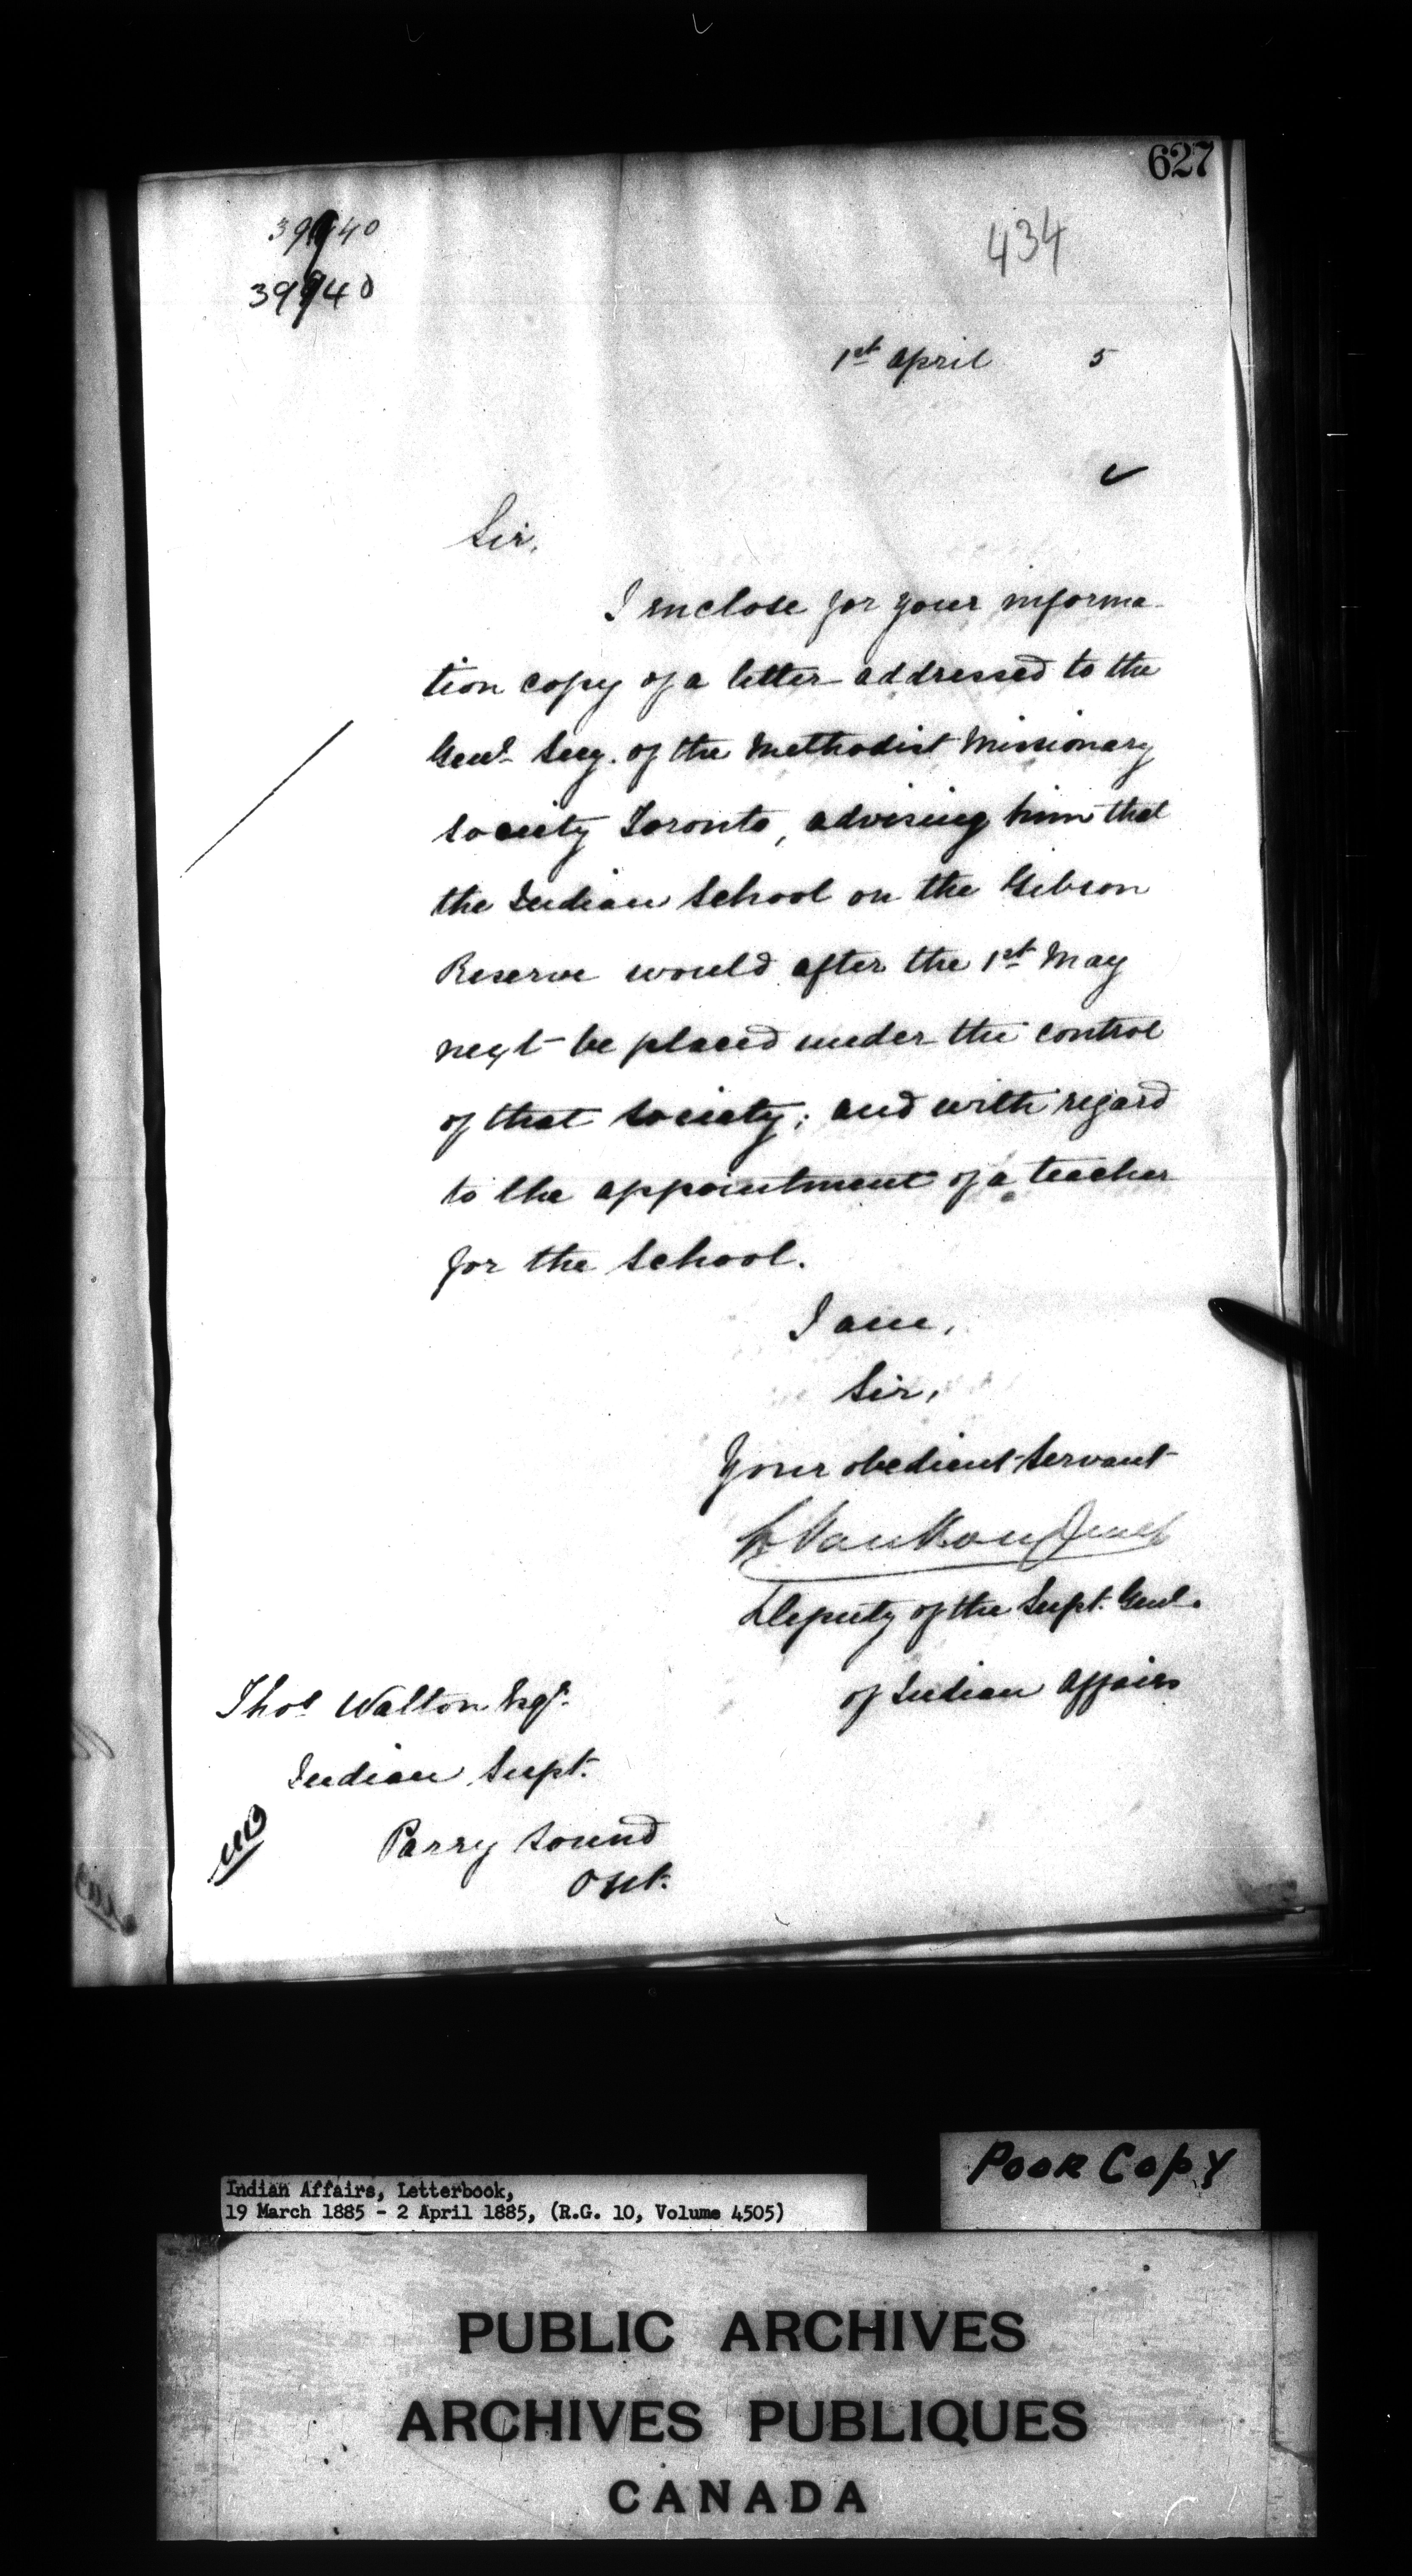 627
434
1st April 5
Sir,
I enclose for your informa-
tion copy of a letter addressed to the
Genl. Secy. of the Methodist Missionary
Society Toronto, advising him that
the Indian School on the Gibson
Reserve would after the 1st May
next be placed under the control
of that Society; and with regard
to the appointment of a teacher
for the School.
I am,
Sir,
Your obedient Servant
L. VanKoughnet
Deputy of the Supt. Genl.
of Indian Affairs
Thos Walton Esqr.
Indian Supt.
Parry Sound
Ont.
POOR COPY
Indian Affairs, Letterbook,
19 March 1885 - 2 April 1885, (R.G. 10, Volume 4505)
PUBLIC ARCHIVES
ARCHIVES PUBLIQUES
CANADA